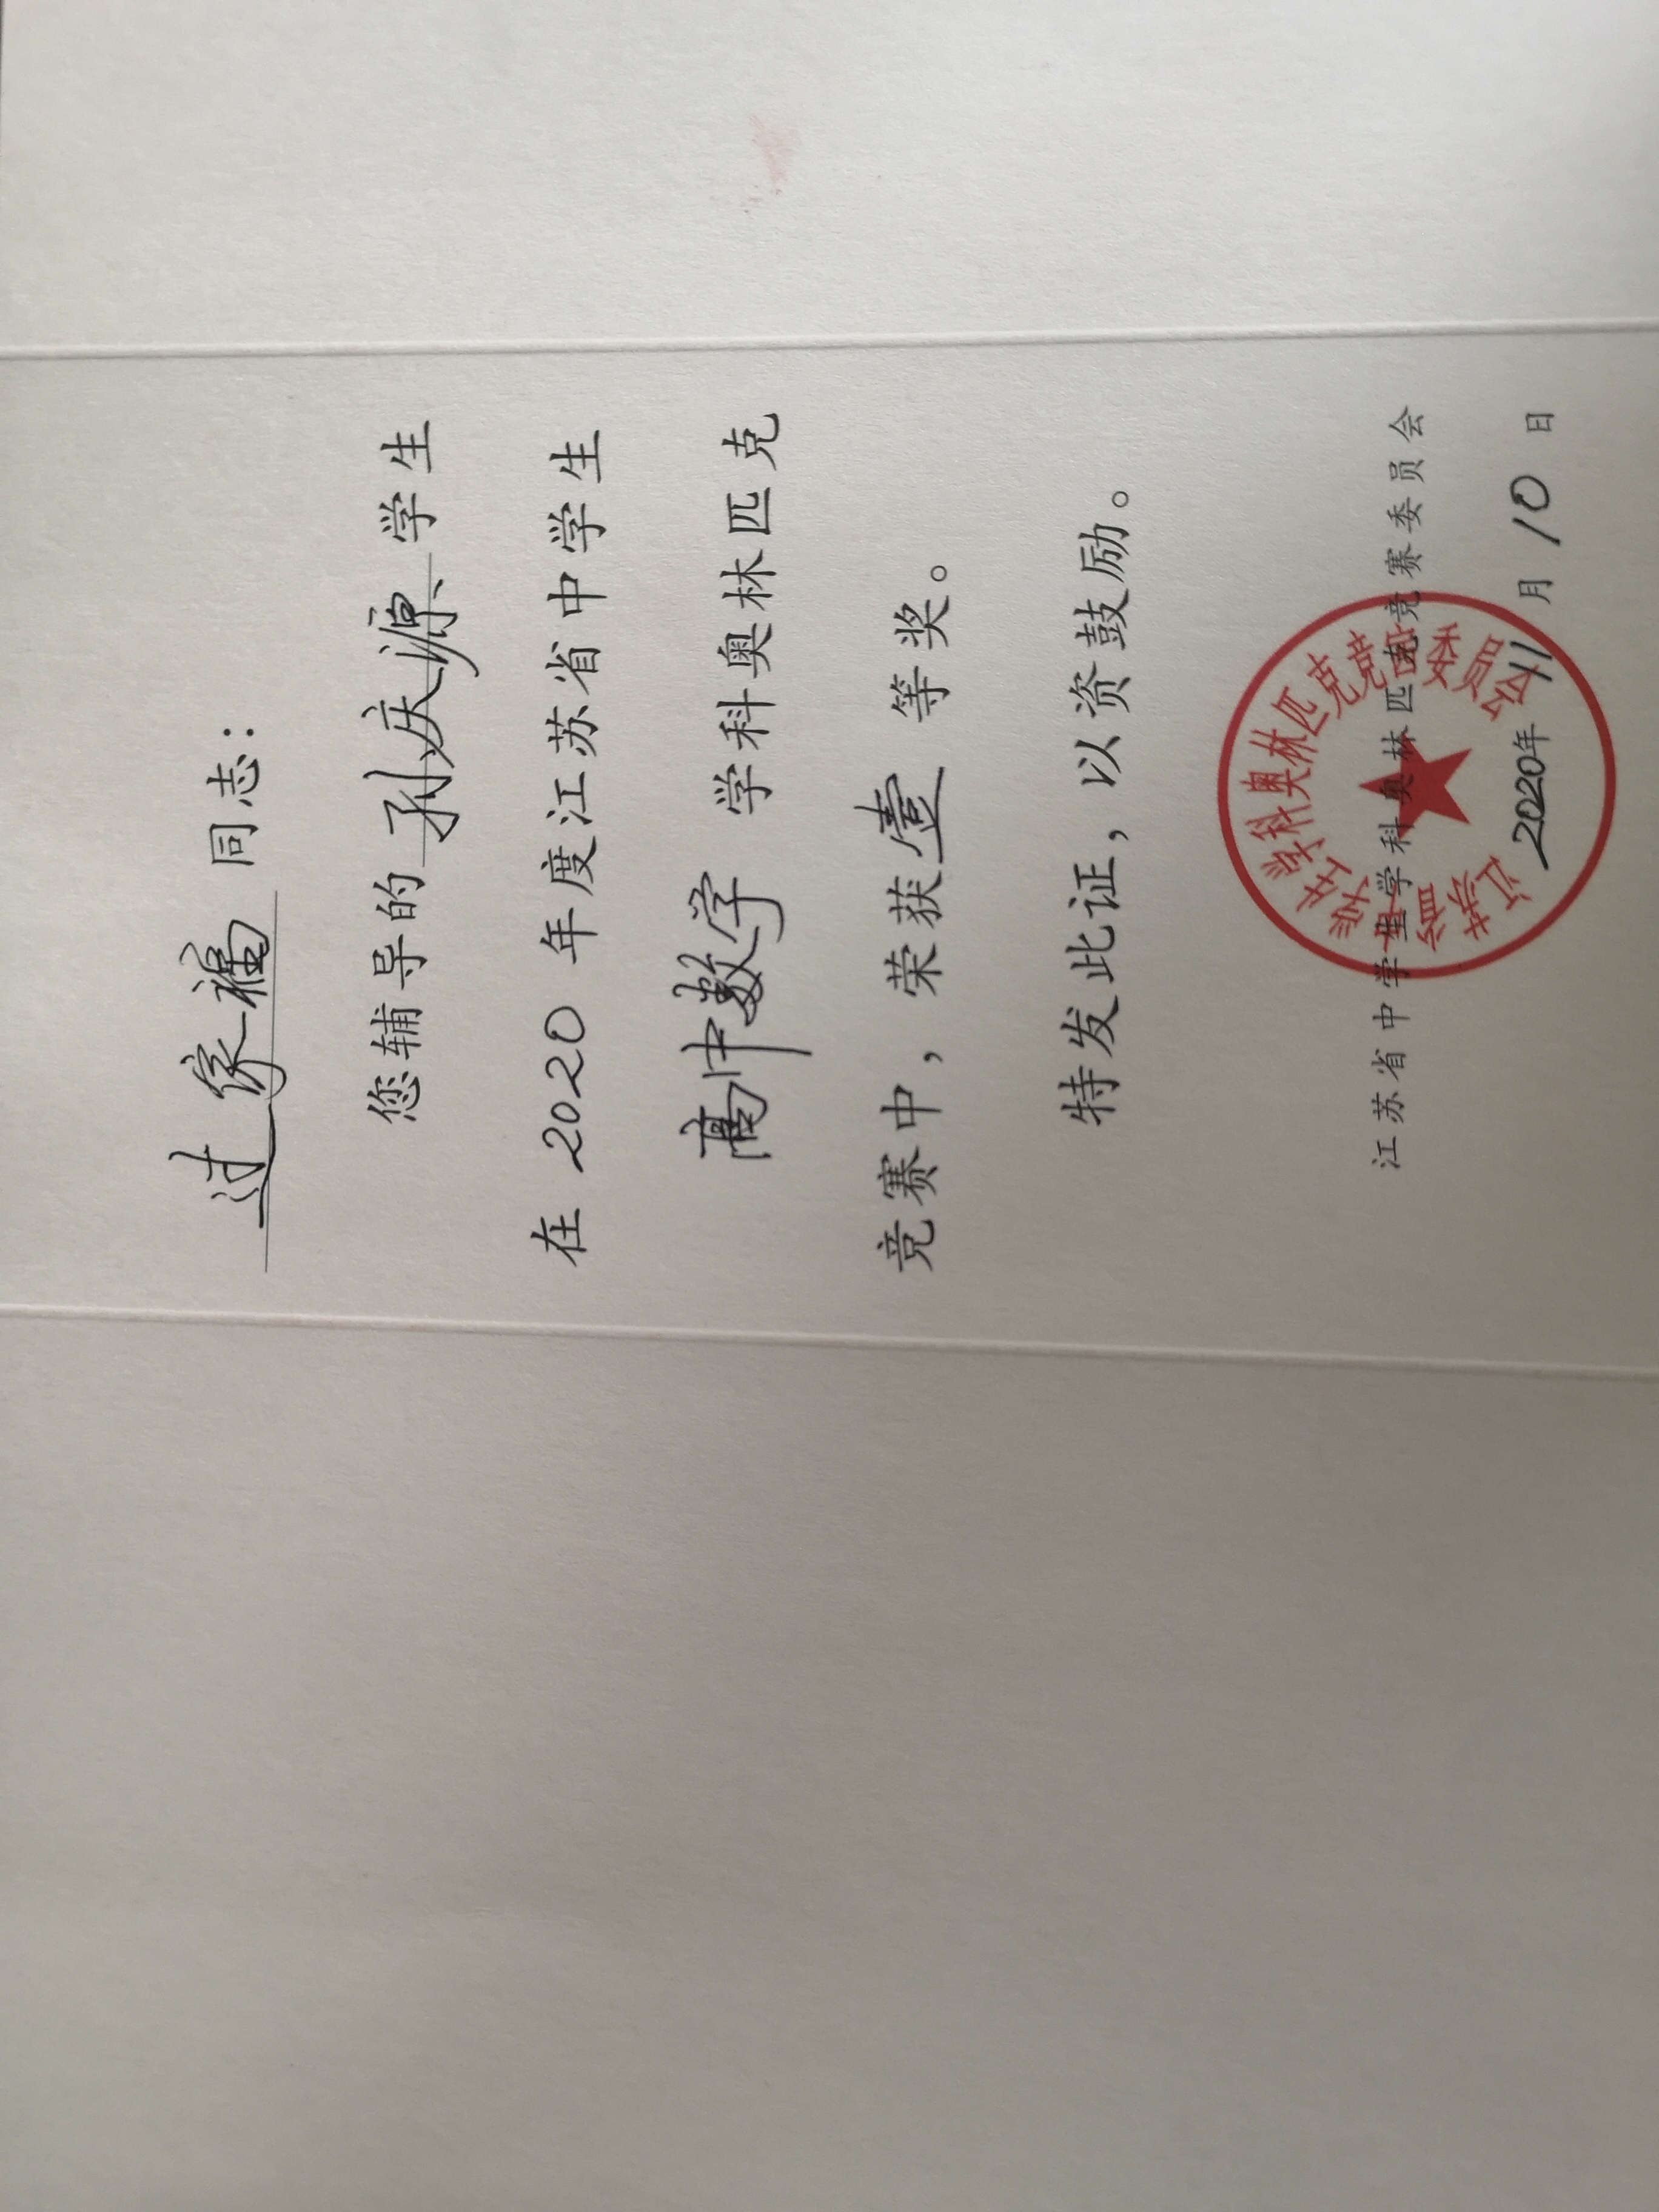 过家福同志：
您辅导的孙庆源学生
在 2020 年度江苏省中学生
高中数学 学科奥林匹克
竞赛中，荣获壹等奖。
特发此证，以资鼓励。
江苏省中学生学科奥林匹克竞赛委员会
2020年 11 月 10 日
江苏省中学生学科奥林匹克竞赛委员会